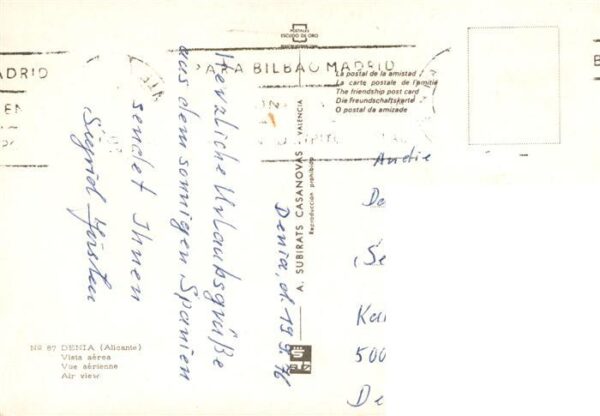 POSTALES
ESCUDO DE ORO
ADRID
PARA BILBAO MADRID
B
EN
E
La postal de la amistad
La carte postale de l'amitié
The friendship post card
Die Freundschaftskarte
O postal da amizade
A. SUBIRATS CASANOVAS - VALENCIA
Reproducción prohibida
Denia, d. 19.9.76
Herzliche Urlaubsgrüße
aus dem sonnigen Spanien
sendet Ihnen
Sigrid
An die
De
Se
Ka
500
De
Nº 87 DENIA (Alicante)
Vista aérea
Vue aérienne
Air view